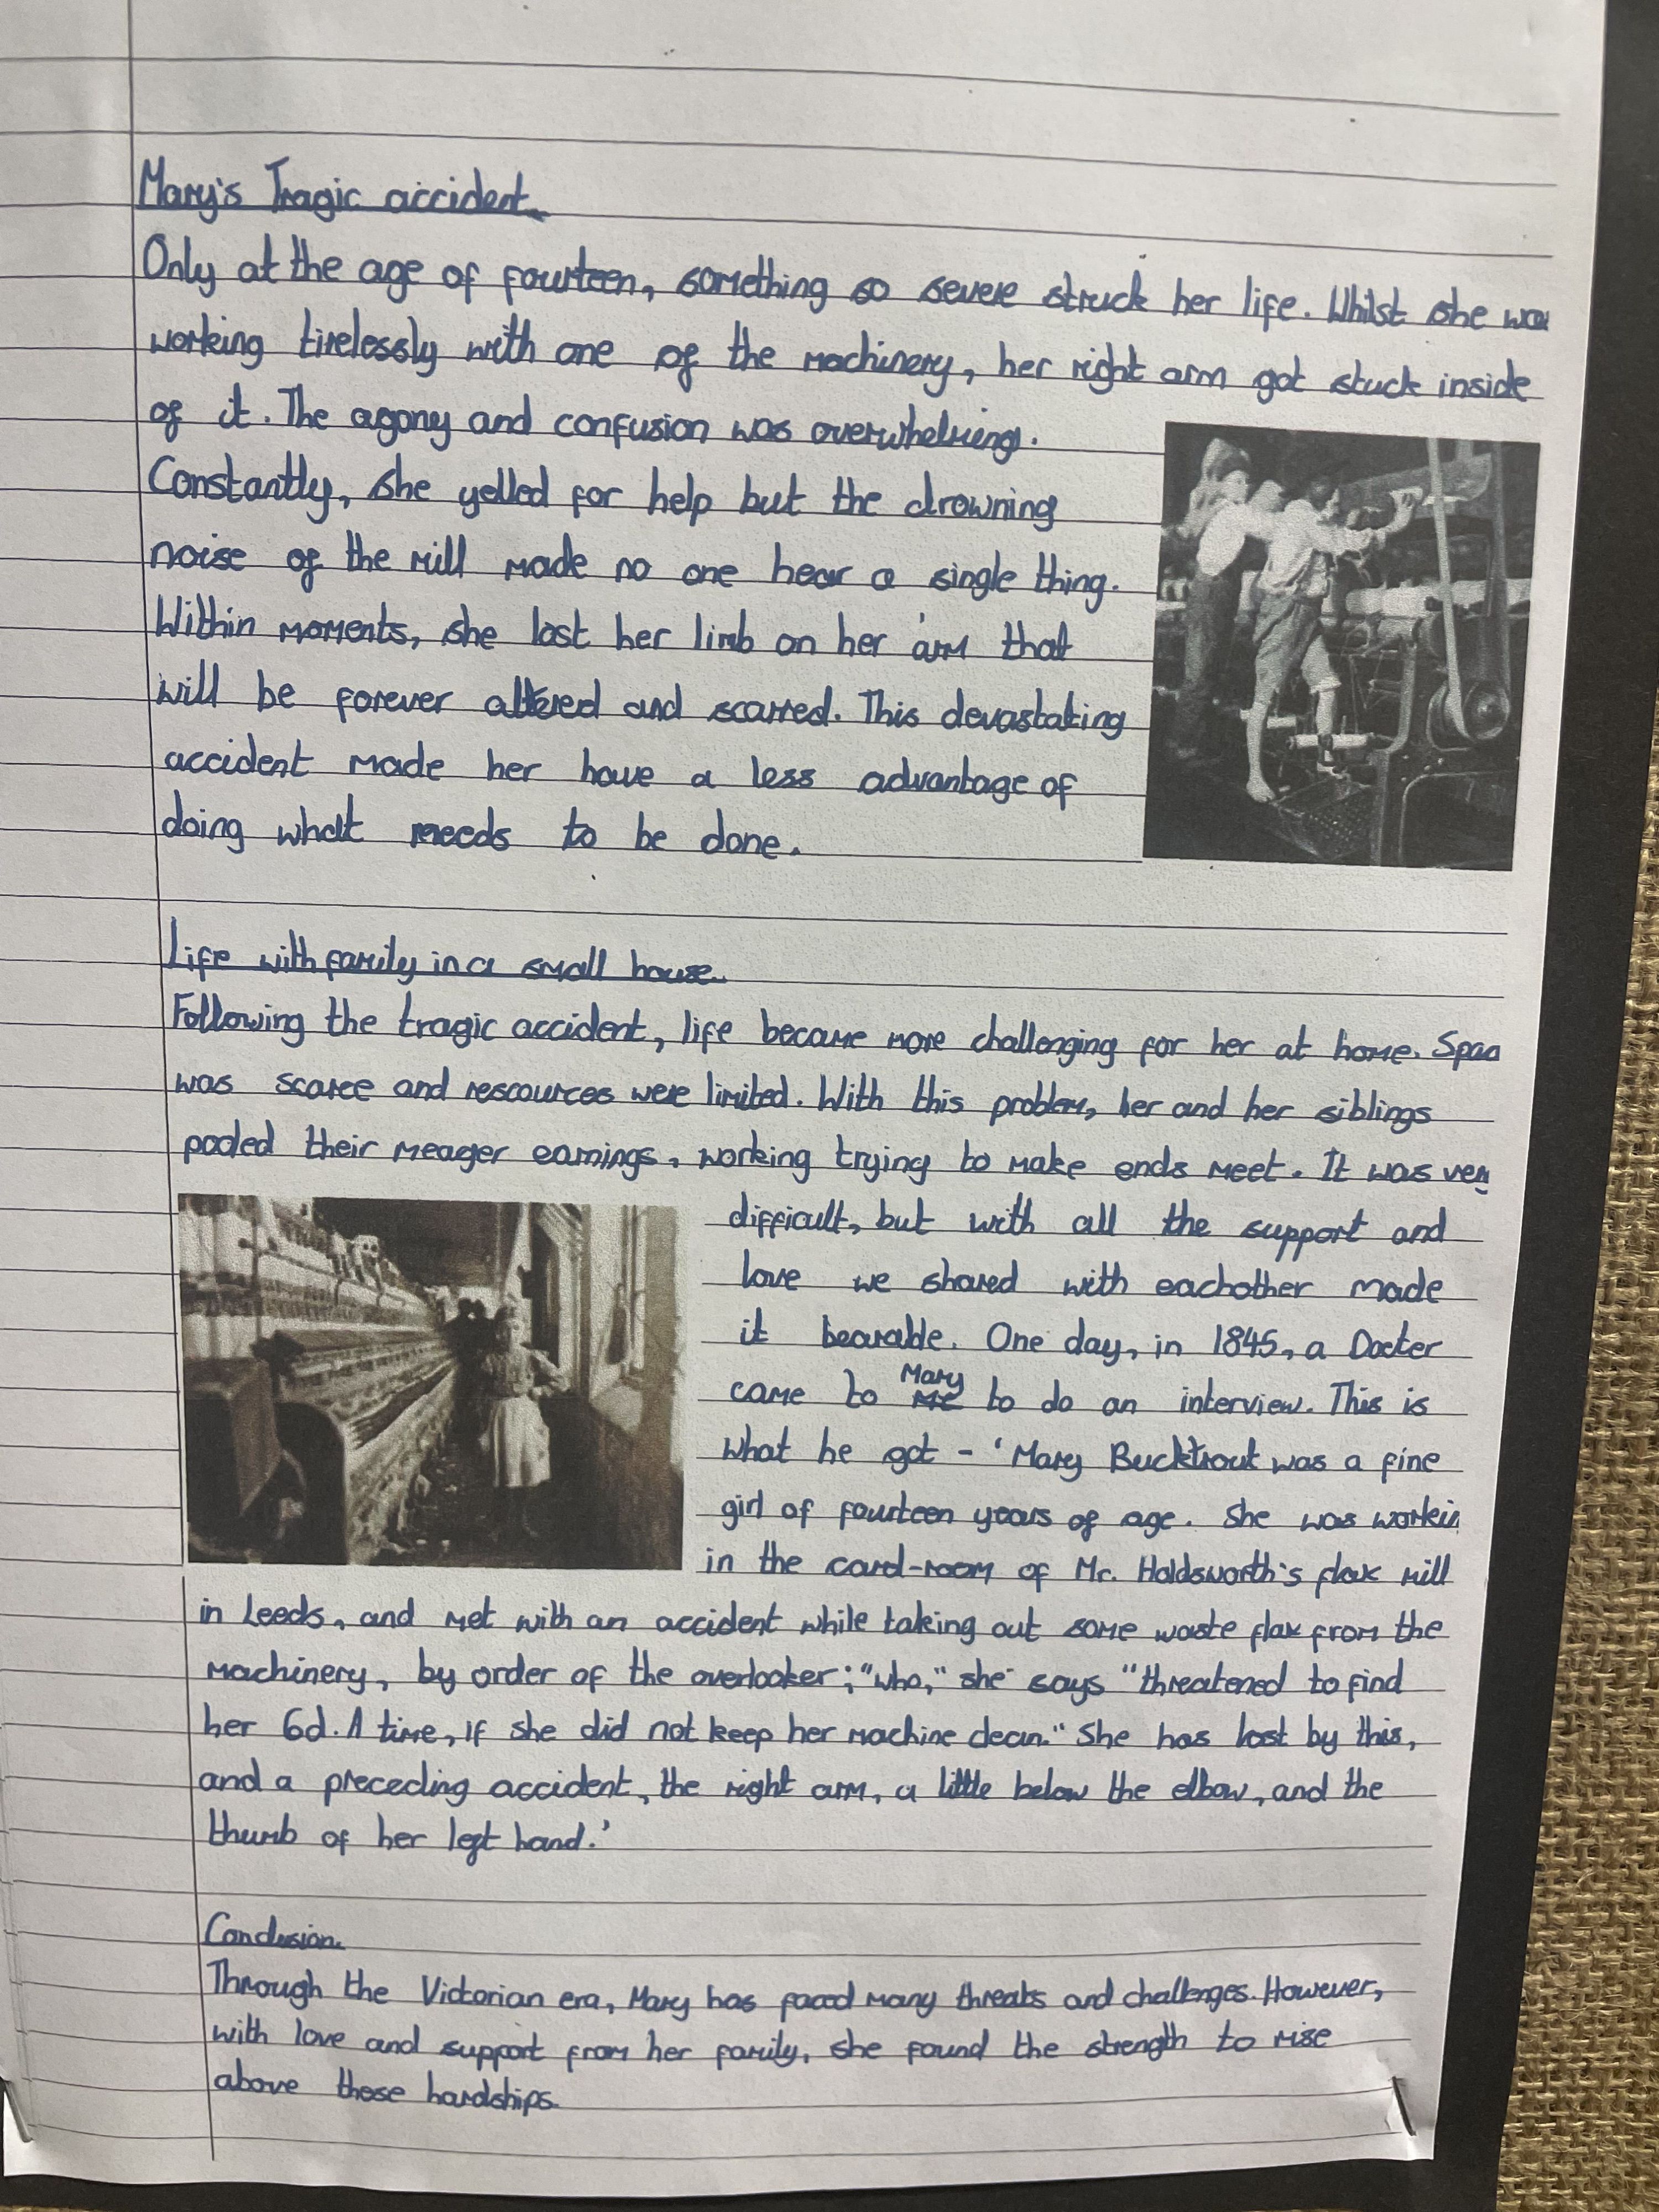 Mary's Tragic accident.
Only at the age of fourteen, something so severe struck her life. Whilst she was
working tirelessly with one of the machinery, her right arm got stuck inside
of it. The agony and confusion was overwhelming.
Constantly, she yelled for help but the drowning
noise of the mill made no one hear a single thing.
Within moments, she lost her limb on her arm that
will be forever altered and scarred. This devastating
accident made her have a less advantage of
doing what needs to be done.
Life with family in a small house.
Following the tragic accident, life became more challenging for her at home. Spac
was scarce and rescources were limited. With this problem, her and her siblings
pooled their meager earnings, working trying to make ends meet. It was very
difficult, but with all the support and
love we shared with eachother made
it bearable. One day, in 1845, a Docter
came to Mary to do an interview. This is
what he got - 'Mary Bucktrout was a fine
girl of fourteen years of age. She was workin
in the card-room of Mr. Holdsworth's flax mill
in Leeds, and met with an accident while taking out some waste flax from the
machinery, by order of the overlooker; "who," she says "threatened to find
her 6d. A time, if she did not keep her machine clean." She has lost by this,
and a preceding accident, the right arm, a little below the elbow, and the
thumb of her left hand.'
Conclusion.
Through the Victorian era, Mary has faced many threats and challenges. However,
with love and support from her family, she found the strength to rise
above those hardships.